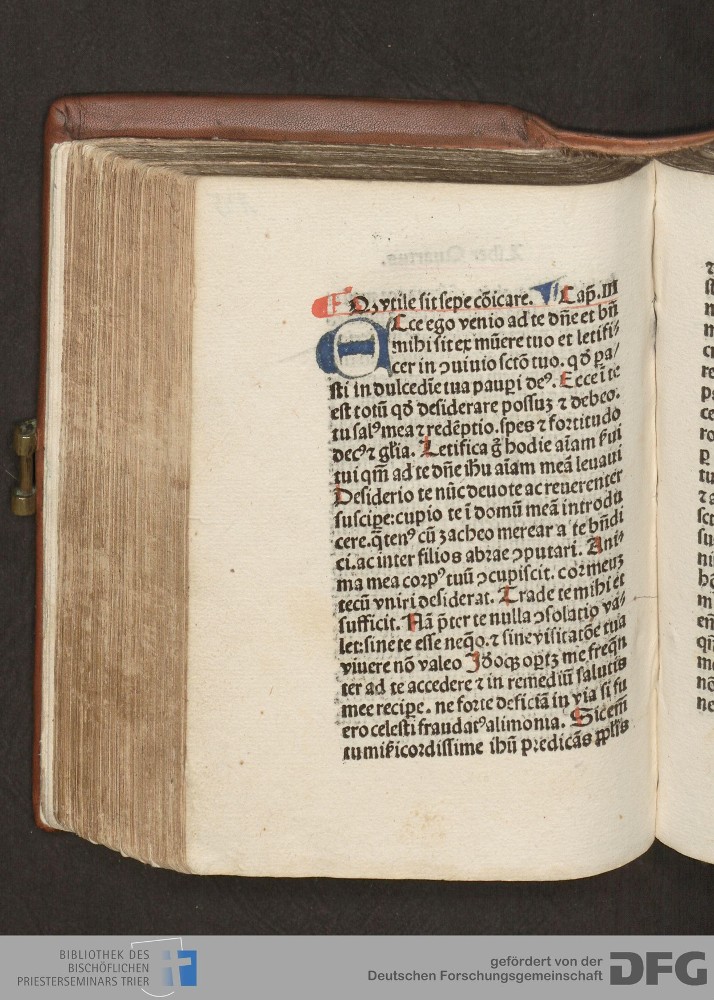 Q, vtile sit sepe cõicare. Cap̃. III
Cce ego venio ad te dñe et bñ
mihi sit ex mũere tuo et letifi⸗
cer in ꝯuiuio sctõ tuo. qđ pa⸗
sti in dulcedĩe tua pauꝑi deꝰ. Ecce ĩ te
est totũ qđ desiderare possuʒ ⁊ debeo.
tu salꝰ mea ⁊ redẽptio. spes ⁊ fortitudo
decꝰ ⁊ glĩa. Letifica g̊ hodie aĩam ẜui
tui qm̃ ad te dñe ihũ aĩam meã leuaui
Desiderio te nũc deuote ac reuerenter
suscipe: cupio te ĩ domũ meã introdu
cere. q̃tenꝰ cũ ʒacheo merear a te bñdi
ci. ac inter filios abrae ꝯputari. Ani⸗
ma mea corpꝰ tuũ ꝯcupiscit. cor meuʒ
tecũ vniri desiderat. Trade te mihi et
sufficit. Nã p̃ter te nulla ꝯsolatio va⸗
let: sine te esse neq̃o. ⁊ sine visitatõe tua
viuere nõ valeo Idoqꝫ oꝑtʒ me freq̃n
ter ad te accedere ⁊ in remediũ salutis
mee recipe. ne forte deficiã in via si fu
ero celesti fraudatꝰ alimonia. Sic em̃
tu mißicordissime ihũ predicãs ꝓplis
BIBLIOTHEK DES
BISCHÖFLICHEN
PRIESTERSEMINARS TRIER
gefördert von der
Deutschen Forschungsgemeinschaft
DFG